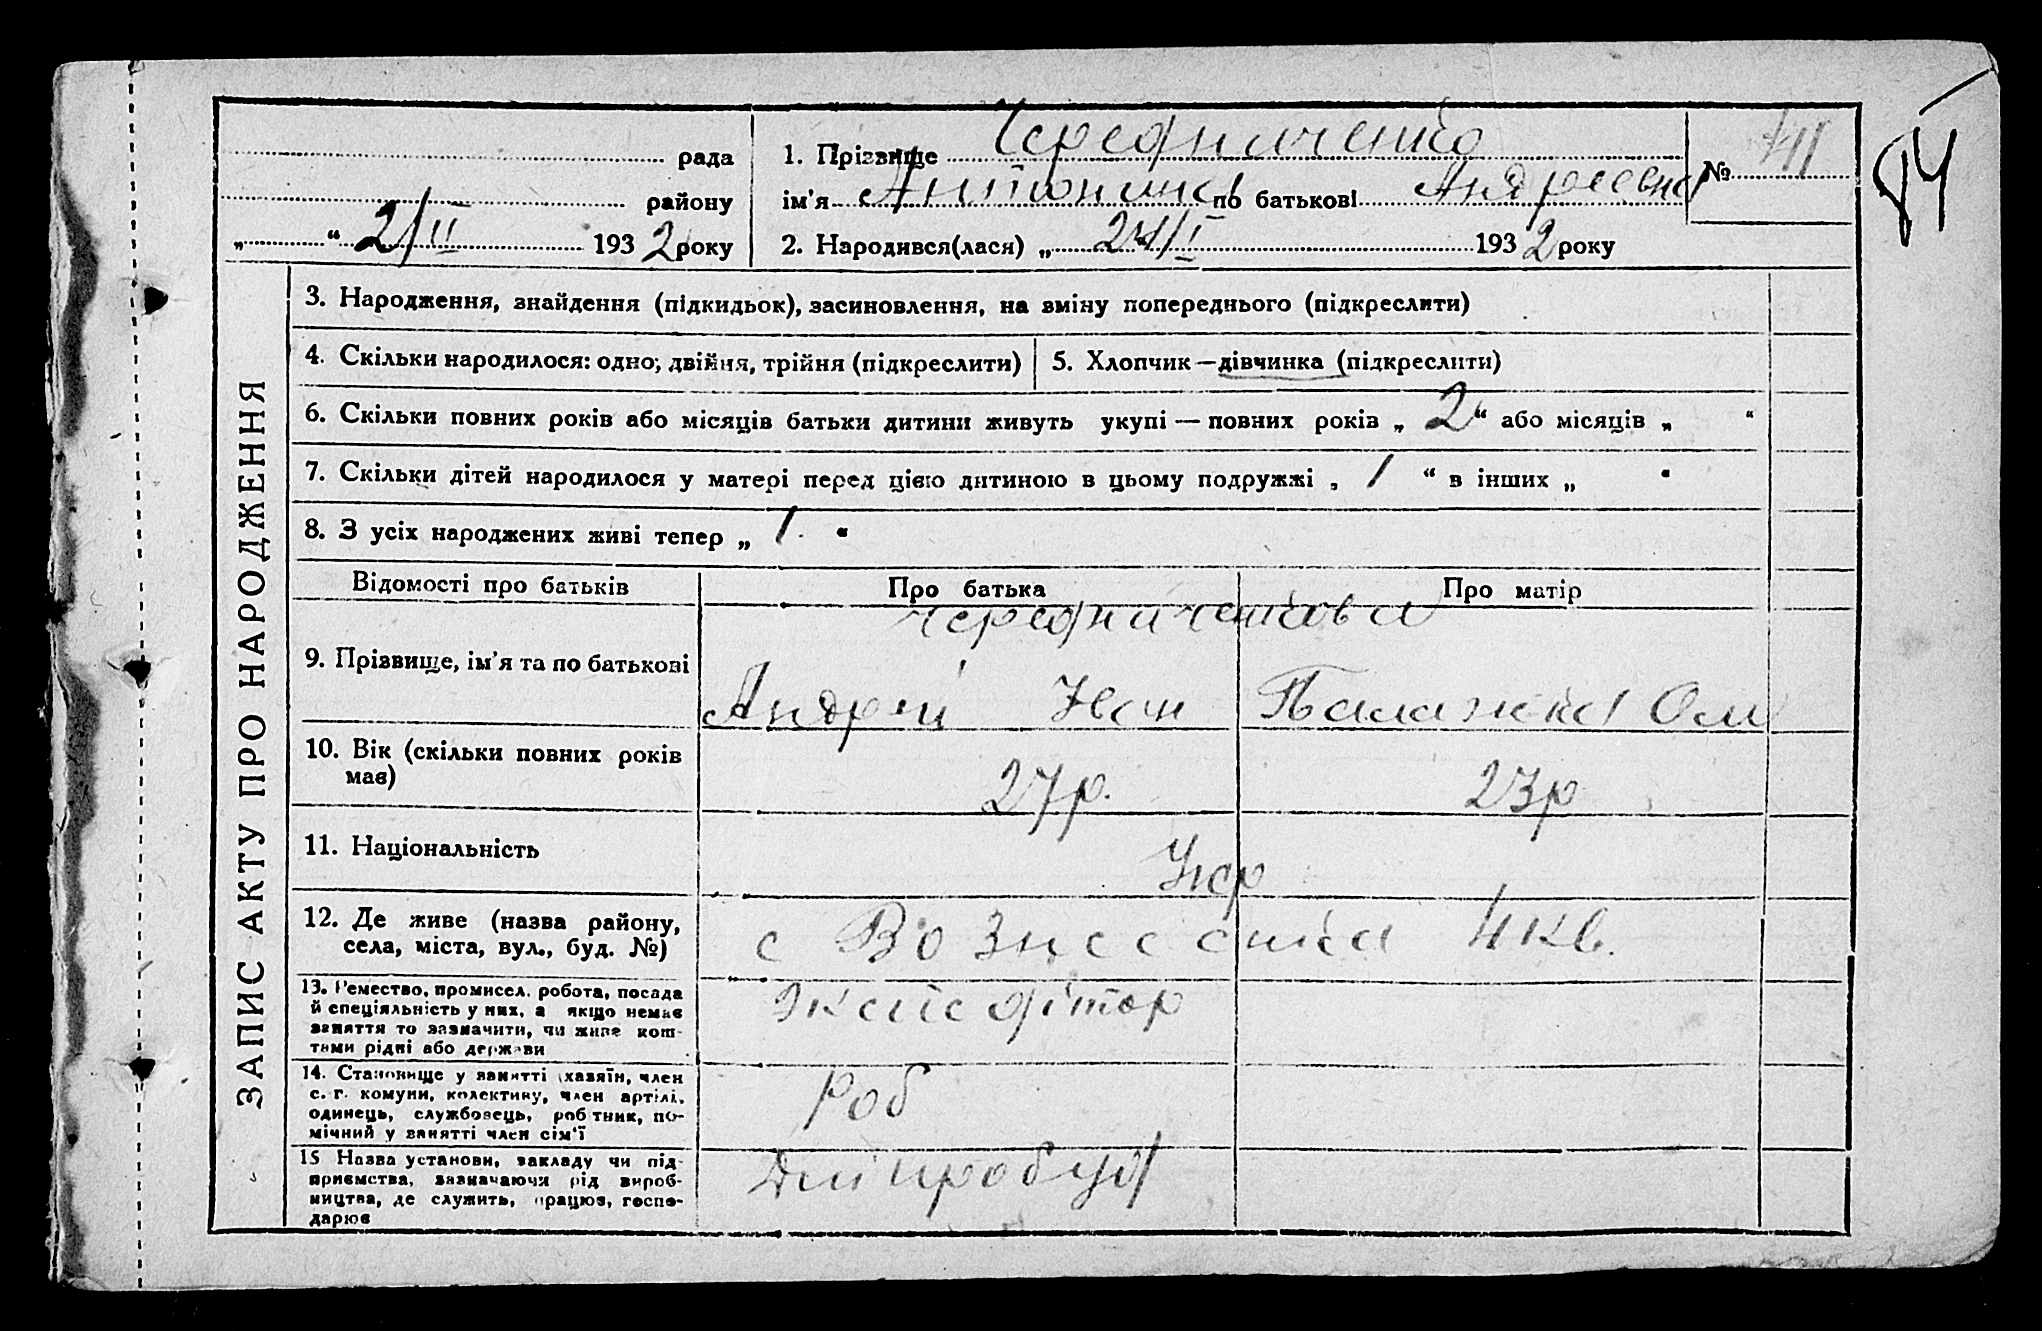 84
рада
району
„ “ 2/II 1932 року
1. Прізвище Чередниченко
ім'я Антонина по батькові Андреевна
2. Народився(лася) „ 24/I 1932 року
№
ЗАПИС АКТУ ПРО НАРОДЖЕННЯ
3. Народження, знайдення (підкидьок), засиновлення, на зміну попереднього (підкреслити)
4. Скільки народилося: одно; двійня, трійня (підкреслити)
5. Хлопчик — дівчинка (підкреслити)
6. Скільки повних років або місяців батьки дитини живуть укупі — повних років „ 2 “ або місяців „ “
7. Скільки дітей народилося у матері перед цією дитиною в цьому подружжі „ 1 “ в інших „ “
8. З усіх народжених живі тепер „ 1. “
Відомості про батьків
Про батька
Про матір
9. Прізвище, ім'я та по батькові
Чередниченкови
Андрій Іван
Палажка Ом
10. Вік (скільки повних років
має)
27р.
23р
11. Національність
Укр
12. Де живе (назва району,
села, міста, вул., буд. №)
с Вознесенка 4 кв.
13. Ремество, промисел, робота, посада
й спеціяльність у них, а якщо немає
заняття то зазначити, чи живе кош-
тами рідні або держави
Экспедітор
14. Становище у занятті (хазяїн, член
с.-г. комуни, колективу, член артілі,
одинець, службовець, робітник, по-
мічний у занятті член сім'ї
Роб
15 Назва установи, закладу чи під-
приємства, зазначаючи рід вироб-
ництва, де служить, працює, госпо-
дарює
Дніпробуд